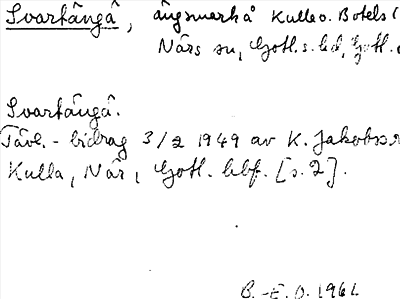 Svartängå, ängsmark å Kulle o. Botels (
När sn, Gotl. s. hd, Gotl.
Svartängå.
Tävl.-bidrag 3/2 1949 av K. Jakobss
Kulla, När, Gotl. bbf. [s. 2].
B.-E. O. 1961